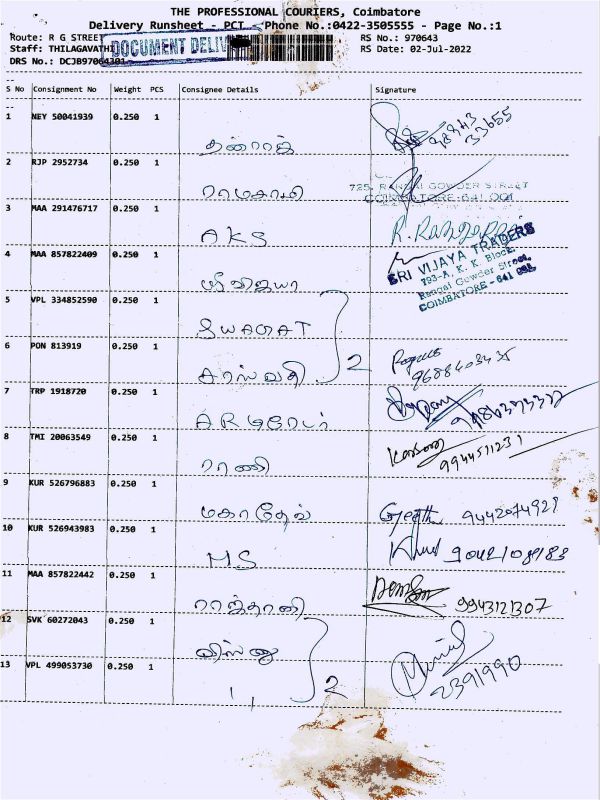 THE PROFESSIONAL COURIERS, Coimbatore
Delivery Runsheet - PCT - Phone No.:0422-3505555 - Page No.:1
Route: R G STREET RS No.: 970643
Staff: THILAGAVATHI DOCUMENT DELIV RS Date: 02-Jul-2022
DRS No.: DCJB97064301
S No Consignment No Weight PCS Consignee Details Signature
1 NEY 50041939 0.250 1
98943
33655
2 RJP 2952734 0.250 1
725, RANGAI GOWDER STREET
COIMBATORE-641 001
3 MAA 291476717 0.250 1
AKS R. Rangappan
SRI VIJAYA TRADERS
4 MAA 857822409 0.250 1
193-A, K. K. Block,
Rangai Gowder Street,
ஸ்ரீ விஜயா
COIMBATORE - 641 001.
5 VPL 334852590 0.250 1
SWAGAT
6 PON 813919 0.250 1
சரஸ்வதி 2
7 TRP 1918720 0.250 1
8 TMI 20063549 0.250 1
ராணி 9944511231
9 KUR 526796883 0.250 1
மகாதேவ் Geetha 9442074921
10 KUR 526943983 0.250 1
MS
11 MAA 857822442 0.250 1
ராஜ்தானி 9943121307
12 SVK 60272043 0.250 1
விஸ்ணு
13 VPL 499053730 0.250 1
" 2 2391990